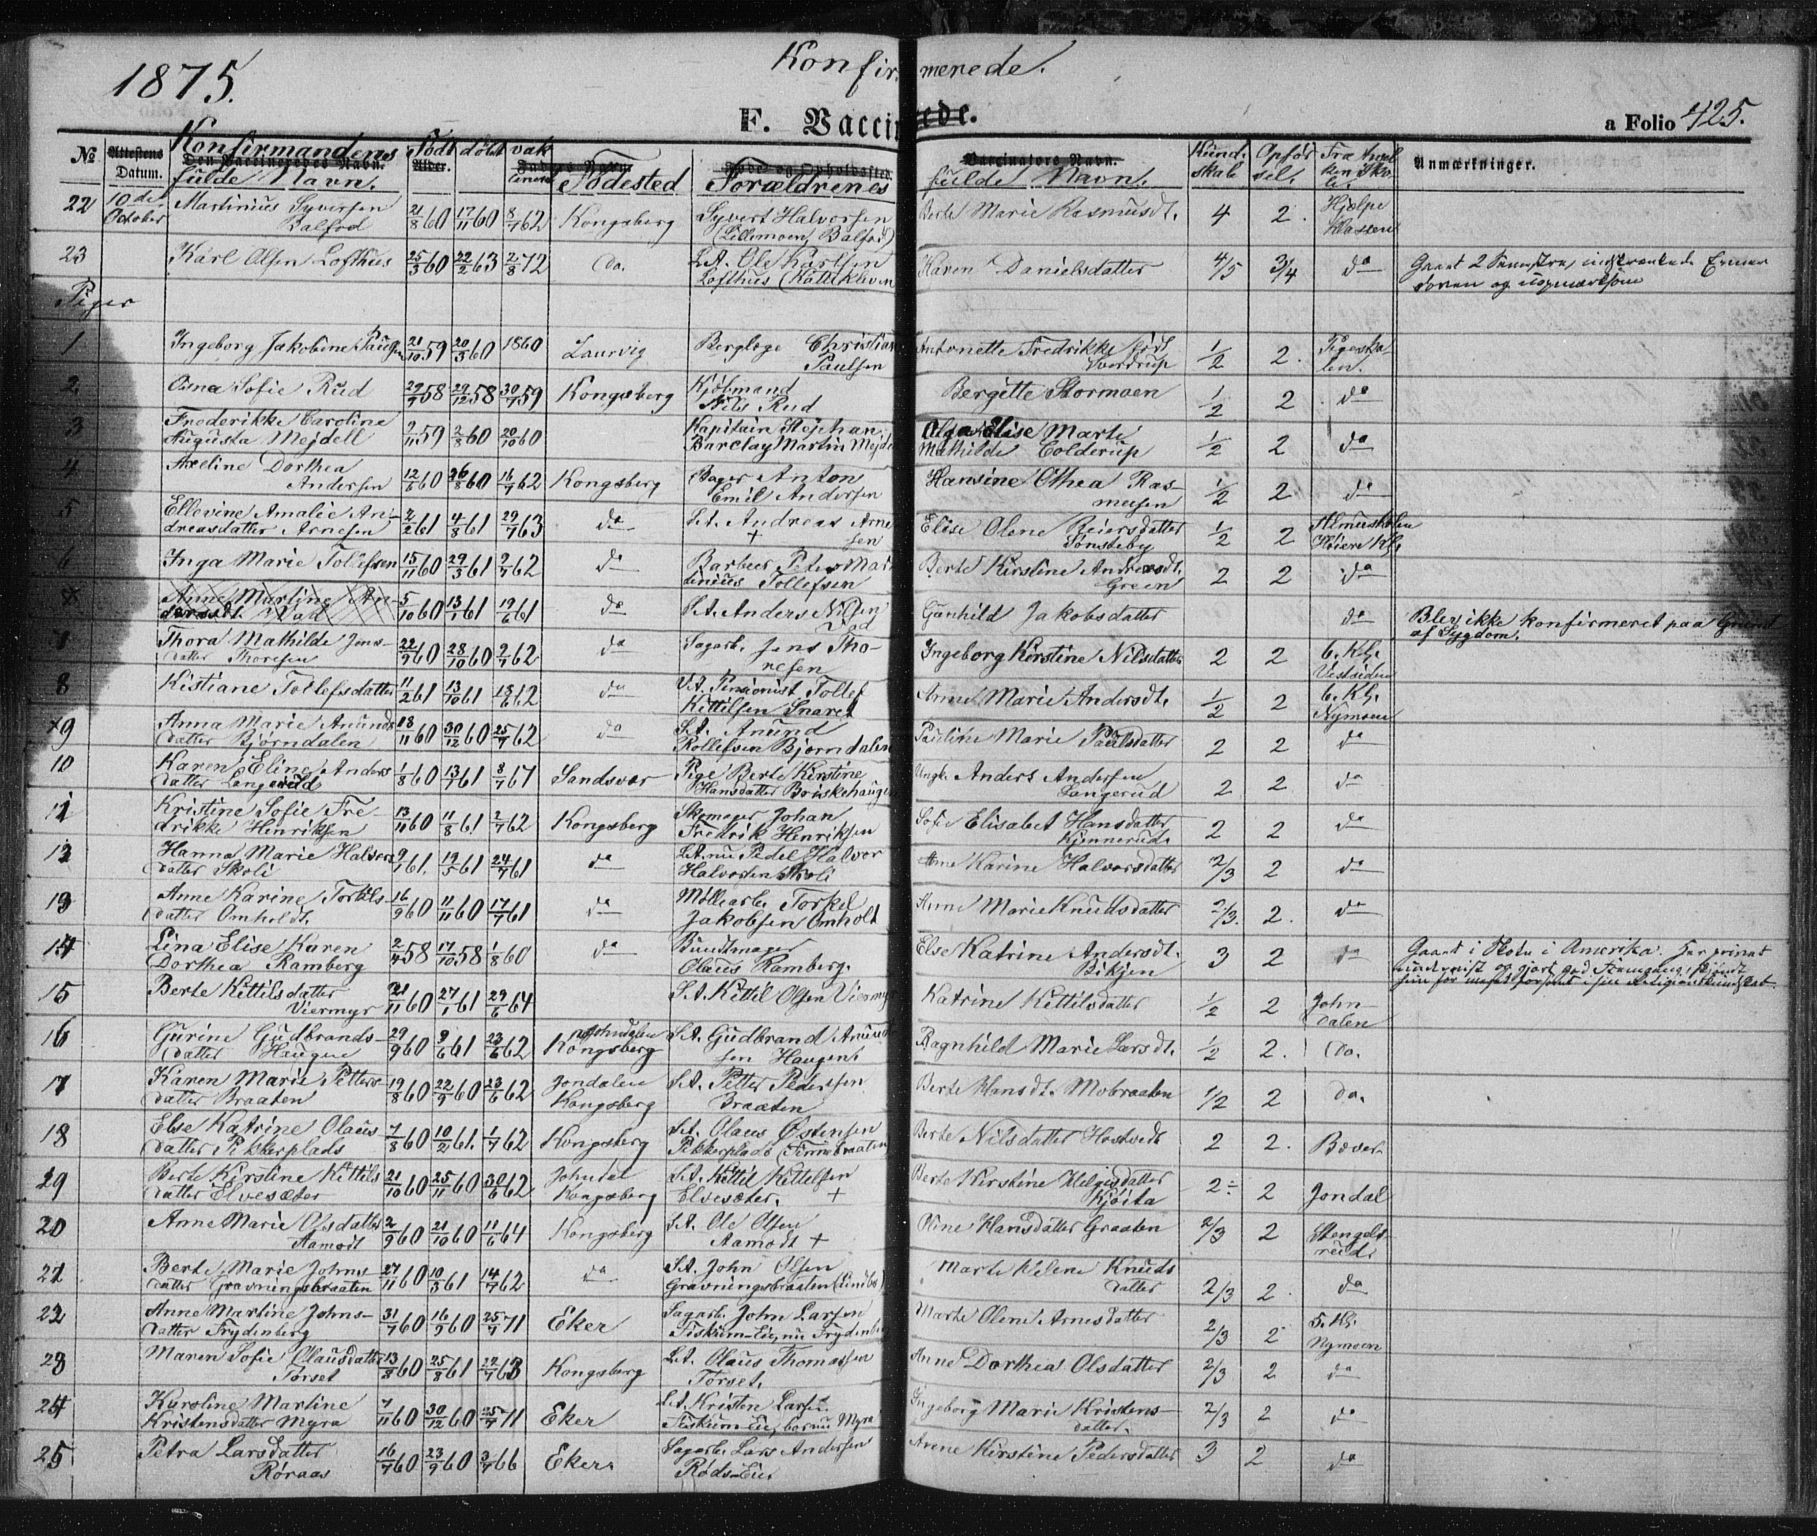 1875.
Konfirmerede.
F. Vaccinerede.
a Folio 425.
No Attestens Datum. Konfirmandens fulde Navn. Født døbt vak Fødested Forældrenes fulde Navn. Kundskab Opførsel. Anmærkninger.
22 10de October Martinius Syversen 21/8 60 17/11 60 8/7 62 Kongsberg Syvert Halvorsen Berte Marie Rasmusdt. 4 2. Hjælpe
Balfod (Lillemoen, Balfod) Klassen
23 Karl Olsen Lofthus 25/3 60 22/2 63 2/8 72 do. L.A. Ole Karlsen Karen Danielsdatter 4/5 3/4 do Gaaet 2
Lofthus (Kattekleven og uopmærksom
Piger
1 Ingeborg Jakobine Paulsen 21/10 59 20/5 60 1860 Laurvig Berglæge Christian Antonette Fredrikke født 1/2 2. Pigesko-
Paulsen Sverdrup len.
2 Sofie Rud 29/9 58 29/12 58 30/7 59 Kongsberg Kjøbmand Bergitte Stormoen 1/2 2 do
Nils Rud
3 Frederikke Caroline 2/11 59 2/8 60 20/10 60 Kapitain Stephan Olga Elise Marte 1/2 2 do
Augusta Mejdell Barclay Martin Mejdell Mathilde Colderup
4 Axeline Dorthea 12/6 60 26/8 60 16/7 62 Kongsberg Bager Anton Hansine Othea Ras- 1/2 2. do
Andersen Emil Andersen musen
5 Ellevine Amalie An- 2/2 61 4/8 61 29/7 63 do L.A. Andreas Arne Elise Olene Reiersdatter 1/2 2 Almueskolen
dreasdatter Arnesen + sen Tønsteby Høiere Kl.
6 Inga Marie Tollefsen 15/11 60 29/3 61 2/7 62 do Barbeer Peter Mar Berte Kirstine Andersdt. 2 2 do
tinius Tollefsen Green
Anne Martine An- 5/10 60 13/1 61 19/6 61 do L.A. Anders Nilsen Gunhild Jakobsdatter do Blev ikke konfirmeret paa Grund
dersdt. Vad Vad af Sygdom.
7 Thora Mathilde Jens- 22/9 60 28/10 60 2/7 62 do Sagarb. Jens Tho- Ingeborg Kirstine Nilsdatter 2 2 6. Kl.
datter Thoresen resen Vestsiden
8 Kistiane Tollefsdatter 11/2 61 13/10 61 18/6 62 do Pensionist Tollef Anne Marie Andersdt. 1/2 2 6. Kl.
Kittilsen Snaret Nymoen
9 Anna Marie Anunds 18/11 60 30/12 60 25/7 62 do L.A. Anund Pauline Marie Paulsdatter 2 2 do
datter Bjørndalen Rollefsen Bjørndalen
10 Karen Eline Anders 1/8 60 13/7 61 8/7 67 Sandsvær Pige Berte Kirstine Ungk. Anders Andersen 2 2 do
datter Langerud Hansdatter Briskehaugen Langerud
11 Kristine Sofie Fre 13/10 60 11/8 61 2/7 62 Kongsberg Skomager Johan Sofie Elisabet Hansdatter 2 2 do
drikke Henriksen Fredrik Henriksen Kjennerud.
12 Hanna Marie Halvors 9/1 61. 19/5 61 24/7 61 do L.A. nu Pedel Halvor Anne Karine Halvorsdatter 2/3 2 do
datter Skoli Halvorsen Skoli
13 Anne Karine Torkils- 16/9 60 11/11 60 17/7 61 do Møllearb. Torkel Anne Marie Knudsdatter 2/3. 2. do
datter Omholdt. Jakobsen Omholt
14 Lina Elise Karen 2/4 58 17/10 58 1/8 60 do Bundtmager Else Katrine Andersdt. 3 2 do Gaaet i Skole i Amerika. Har privat
Dorthea Ramberg Olaus Ramberg. Bikjen undervist og gjort god Fremgang, skjøndt
hun før meget forsømt i sin Religionskundskab.
15 Berte Kittilsdatter 21/11 60 27/1 61 29/6 64 L.A. Kittil Olsen Viermyr Katrine Kittilsdatter 1/2 2 John-
Viermyr dalen
16 Gurine Gudbrands- 29/9 60 9/6 61 23/6 62 Johndalen L.A. Gudbrand Anund Ragnhild Marie Larsdt. 1/2 2. Do.
datter Haugen Kongsberg sen Haugen
17 Karen Marie Petters 19/8 60 22/9 60 23/6 62 Jondalen L.A. Petter Pedersen Berte Hansdt. Mobraaten 1/2 2 Do.
datter Braaten Kongsberg Braaten
18 Else Katrine Olaus 7/8 60 10/2 61. 1/7 62 Kongsberg L.A. Olaus Østensen Berte Nilsdatter Hostvedt 2 2. Bæver
datter Pikkerplads Pikkerplads (Finnebraaten
19 Berte Kirstine Kittils 21/10 60 25/11 60 30/6 62 Johndal L.A. Kittil Kittelsen Berte Kirstine Helgesdatter 2÷ 2 Jondal
datter Elvesæter Kongsberg Elvesæter. + Kjøita
20 Anne Marie Olsdatter 2/9 60 21/10 60 11/6 64 Kongsberg L.A. Ole Olsen Oline Hansdatter Graaten 2/3 2 Stengels-
Aamodt Aamodt + rud.
21 Berte Marie Johns 27/11 60 10/3 61 14/7 62 do L.A. John Olsen Marte Helene Knuds 2/3 2. do
datter Gravningsbraaten Gravningsbraaten (Lindbo) datter
22 Anne Martine Johns- 31/7 60 16/9 60 25/7 71 Eker Sagarb. John Larsen Marte Olene Arnesdatter 2/3 2 5. Kl.
datter Frydenberg Fiskum-Eie, nu Frydenberg Nymoen
23 Maren Sofie Olausdatter 13/8 60 25/8 61 22/7 63 Kongsberg L.A. Olaus Thomassen Anne Dorthea Olsdatter 2/3 2 do
Torset Torset.
24 Karoline Martine 7/11 60 30/12 60 25/7 71 Eker L.A. Kristen Larsen Ingeborg Marie Kristens- 2/3 2 do
Kristensdatter Myra Fiskum-Eie, bor nu Myra datter.
25 Petra Larsdatter 16/7 60 23/9 60 3/7 66 Eker Sagarb. Lars Andersen Anne Kirstine Pedersdatter 3 2 do
Røraas Røds-Eie